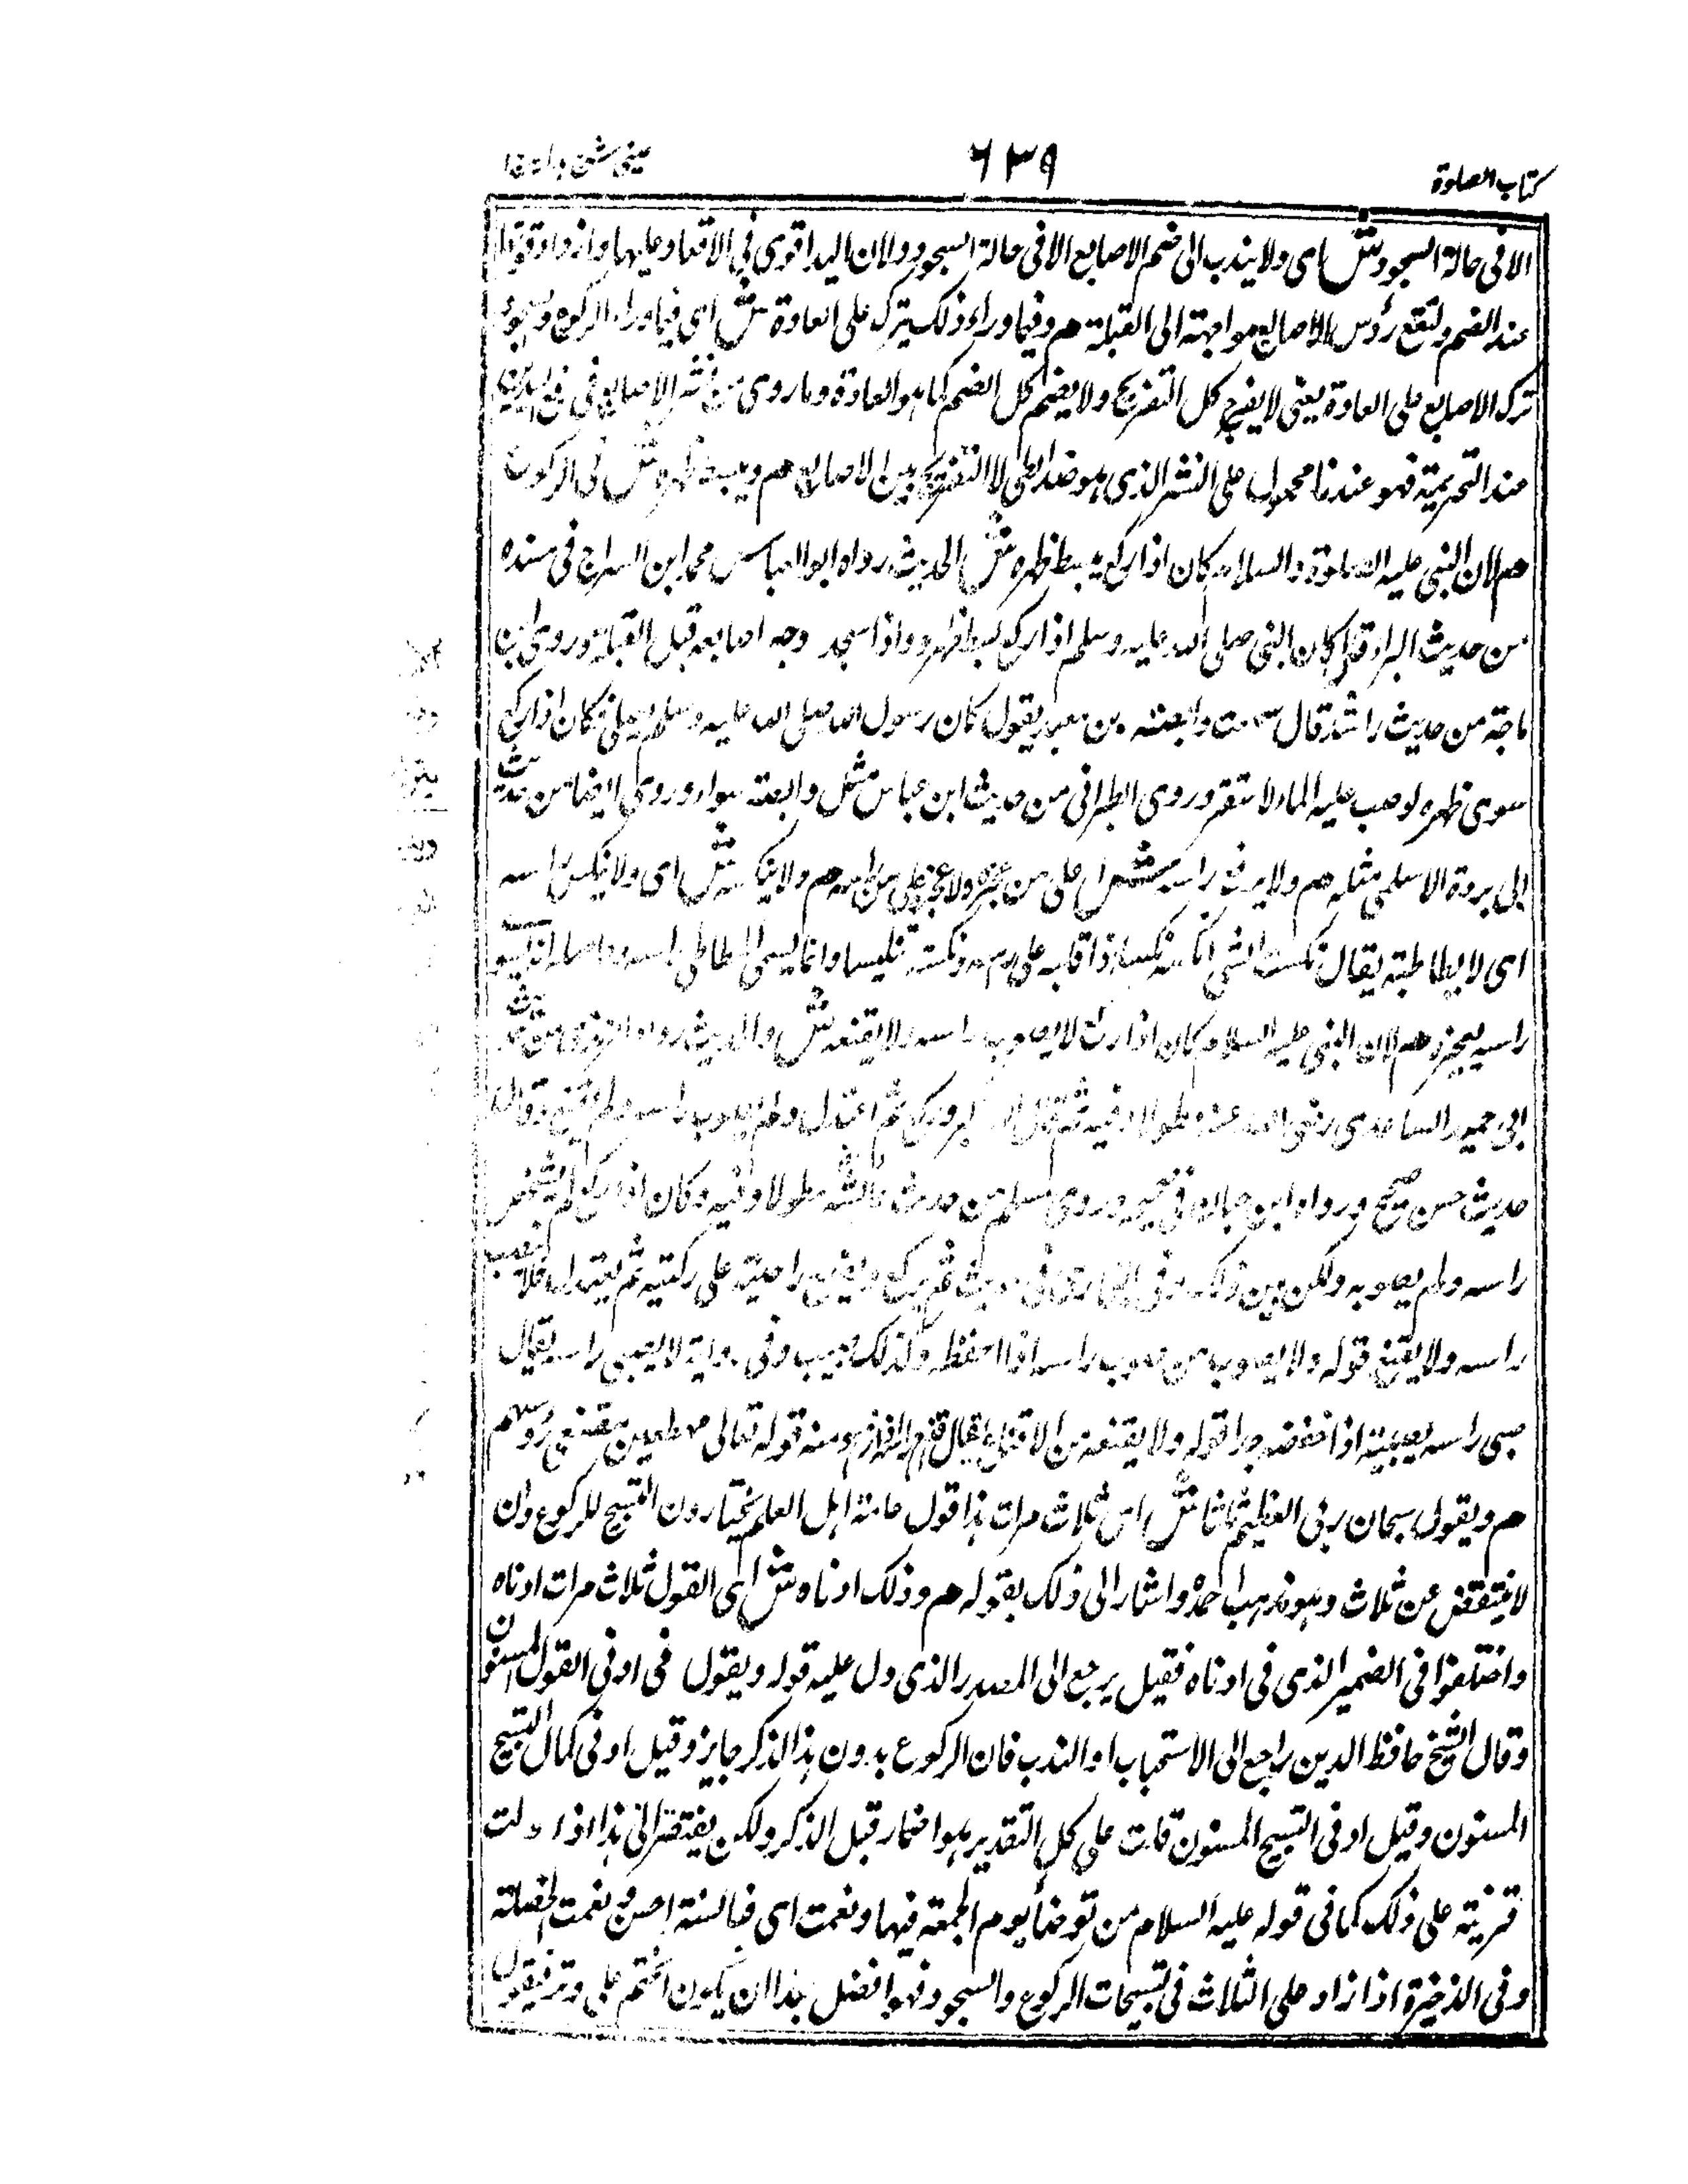 كتاب الصلوة
٦٣٩
الا فى حالة السجود ش اى ولا يندب الى ضم الاصابع الا فى حالة السجود ولان اليد اقوى فى الاعتماد عليها وازداد قوتها
عند الضم ولتقع رؤس الاصابع مواجهة الى القبلة م وفيما وراء ذلك يترك على العادة ش اى فيما وراء الركوع والسجود
ترك الاصابع على العادة يعنى لا يفرج كل التفريج ولا يضم كل الضم كما هو العادة وما روى من نشر الاصابع فى رفع اليدين
عند التحريمة فهو عندنا محمول على النشر الذى هو ضد الطى لا التفريج بين الاصابع م ويبسط ظهره ش فى الركوع
م لان النبى عليه الصلوة والسلام كان اذا ركع يبسط ظهره ش الحديث رواه ابو العباس محمد ابن السراج فى مسنده
من حديث البراء قال كان النبى صلى الله عليه وسلم اذا ركع بسط ظهره واذا سجد وجه اصابعه قبل القبلة وروى ابن
ماجة من حديث راشد قال سمعت وابصة بن معبد يقول كان رسول الله صلى الله عليه وسلم يصلى فكان اذا ركع
سوى ظهره لو صب عليه الماء لاستقر وروى الطبرانى من حديث ابن عباس مثل وابصة سواء وروى ايضا من حديث
ابى بردة الاسلمى مثله م ولا يرفع راسه ش اى على من عجزه ولا عجزه على من راسه م ولا ينكسه ش اى ولا ينكس راسه
اى لا يطاطئه يقال نكست الشى انكسه نكسا اذا قلبه على راسه ونكسته تنكيسا وانما يسمى المطاطى راسه
راسه بعجزه م لان النبى عليه السلام كان اذا ركع لا يصوب راسه ولا يقنعه ش والحديث رواه الترمذى من حديث
ابى حميد الساعدى رضى الله عنه مطولا وفيه ثم قال الله اكبر وركع ثم اعتدل ولم يصوب راسه ولم يقنع وقال
حديث حسن صحيح ورواه ابن حبان فى صحيحه وروى مسلم من حديث عائشة مطولا وفيه وكان اذا ركع لم يشخص
راسه ولم يصوبه ولكن بين ذلك وفى البخارى فى حديث ثم يركع ويضع راحتيه على ركبتيه ثم يعتدل فلا يصب
راسه ولا يقنع قوله ولا يصوب من صوب راسه اذا خفظه وكذلك يصيب وفى رواية لا يصبى راسه يقال
صبى راسه يصبيه اذا خفضه جدا قوله ولا يقنعه من الاقناع يقال ومنه قوله تعالى مهطعين مقنعى رؤسهم
م ويقول سبحان ربى العظيم ثلثا ش اى ثلاث مرات هذا قول عامة اهل العلم يختارون التسبيح للركوع وان
لا ينتقض عن ثلاث وهو مذهب احمد واشار الى ذلك بقوله م وذلك ادناه ش اى القول ثلاث مرات ادناه
واختلفوا فى الضمير الذى فى ادناه فقيل يرجع الى المصدر الذى دل عليه قوله ويقول فى ادنى القول المسنون
وقال الشيخ حافظ الدين راجع الى الاستحباب او الندب فان الركوع بدون هذا الذكر جايز وقيل ادنى كمال التسبيح
المسنون وقيل ادنى التسبيح المسنون قلت على كل التقدير هو اضمار قبل الذكر ولكن يفتقر الى هذا اذا دلت
قرينة على ذلك كما فى قوله عليه السلام من توضأ يوم الجمعة فبها ونعمت اى فبالسنة احسن ونعمت الخصلة
وفى الذخيرة اذا زاد على الثلاث فى تسبيحات الركوع والسجود فهو افضل بعد ان يكون الختم على وتر فيقول